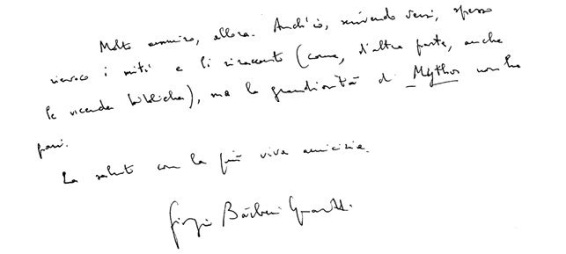 Molto ammiro, allora. Anch'io, scrivendo versi, spesso
rievoco i miti e li racconto (come, d'altra parte, anche
le vicende bibliche), ma la grandiosità di Mythos non ha
pari.
La saluto con la più viva amicizia.
Giorgio Bárberi Squarotti.